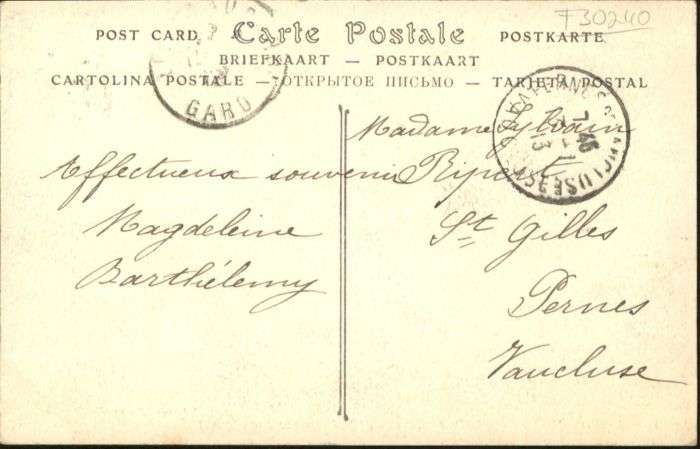 F30240
POST CARD Carte Postale POSTKARTE
BRIEFKAART — POSTKAART
CARTOLINA POSTALE — ОТКРЫТОЕ ПИСЬМО — TARJETA POSTAL
GARD
7·45
13
VAUCLUSE
Effectueux souvenir
Magdeleine
Barthélemy
Madame Sylvain
Ripert
St Gilles
Pernes
Vaucluse